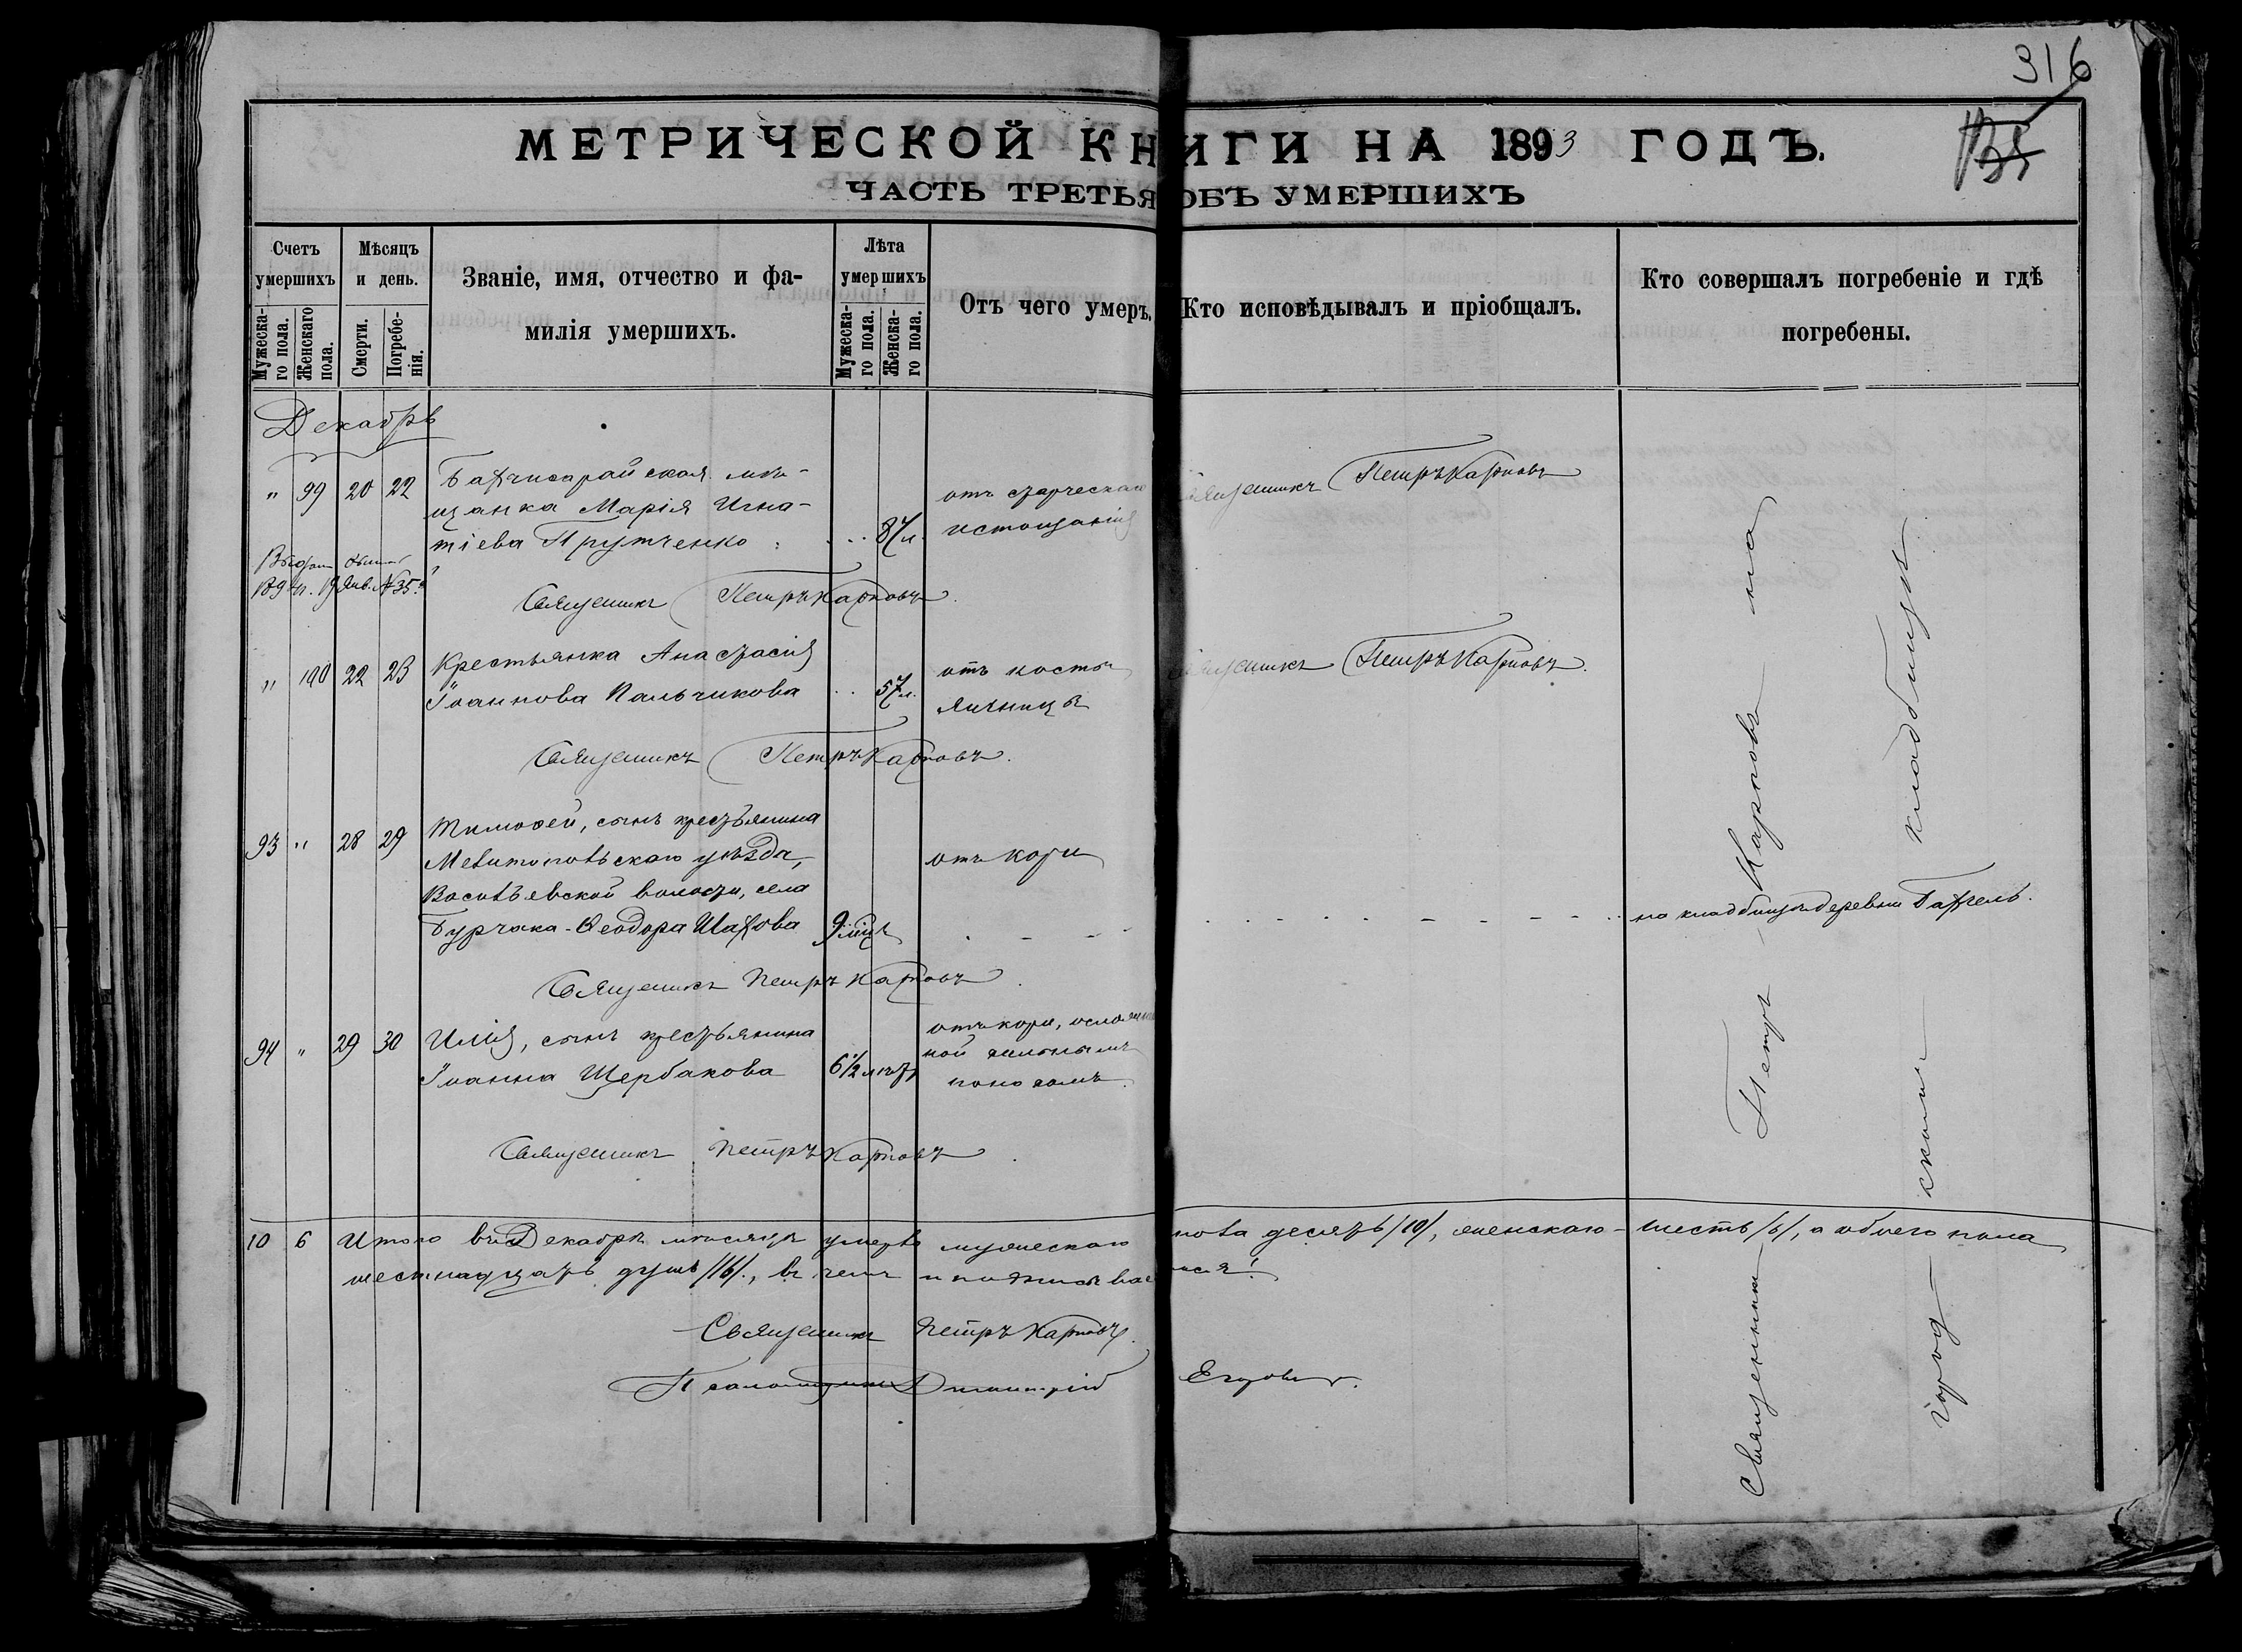 316
МЕТРИЧЕСКОЙ КНИГИ НА 1893 ГОДЪ.
135
ЧАСТЬ ТРЕТЬЯ ОБЪ УМЕРШИХЪ
Счетъ умершихъ
Мужеска-го пола.
Женскаго пола.
Мѣсяцъ и день.
Смерти.
Погребе-нія.
Званіе, имя, отчество и фа-
милія умершихъ.
Лѣта умершихъ
Мужеска-го пола.
Женска-го пола.
Отъ чего умеръ.
Кто исповѣдывалъ и пріобщалъ.
Кто совершалъ погребеніе и гдѣ
погребены.
Декабрь
" 99 20 22 Бахчисарайская мѣ-
щанка Марія Игна-
тіева Прутченко 87 л.
отъ старческаго
истощанія
Священникъ Петръ Карповъ
Янв. № 35
Священникъ Петръ Карповъ.
" 100 22 23 Крестьянка Анастасія
Іоаннова Пальчикова 57 л.
отъ
Священникъ Петръ Карповъ.
Священникъ Петръ Карповъ.
93 " 28 29 Тимоѳей, сынъ крестьянина
Мелитопольскаго уѣзда,
Васильевской волости, села
Бурчака - Ѳеодора Шахова 9 мѣс.
отъ кори
на кладбищѣ деревни Бахчель.
Священникъ Петръ Карповъ.
94 " 29 30 Илія, сынъ крестьянина
Іоанна Щербакова 6 1/2 лѣтъ
отъ кори, осложнен
ной сильнымъ
поносомъ.
Священникъ Петръ Карповъ.
Священникъ Петръ Карповъ на
город скомъ кладбищѣ
10 6 Итого въ Декабрѣ мѣсяцѣ умерло мужескаго пола десять /10/, женскаго - шесть /6/, а обоего пола
шестнадцать душъ /16/, въ чемъ и подписываемся:
Священникъ Петръ Карповъ.
Псаломщикъ Димитрій